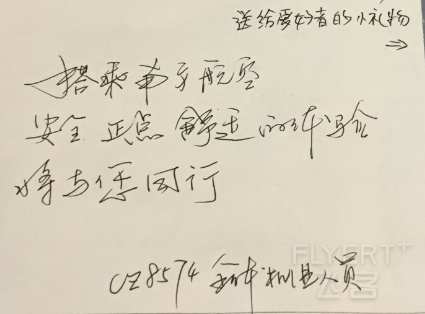 送给爱好者的小礼物
→
搭乘南方航空
安全 正点 舒适的体验
将与您同行
CZ8574 全体机组人员
FLYERT+